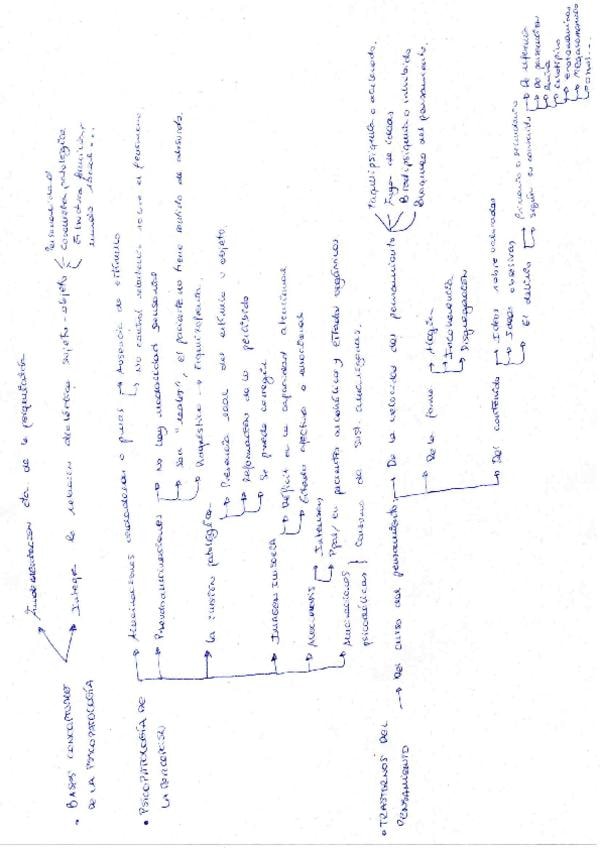 • BASES CONCEPTUALES DE LA PSICOPATOLOGÍA
→ Fundamentación cta. de la psiquiatría
→ Integra la relación dialéctica sujeto-objeto
Personalidad
Conducta patológica
Estructura familiar,
mundo laboral...
• PSICOPATOLOGÍA DE LA PERCEPCIÓN
→ Alucinaciones verdaderas o puras
→ Ausencia de estímulo
→ No control voluntario sobre el fenómeno.
→ Pseudoalucinaciones
→ No hay vivacidad sensorial
→ Son "reales", el paciente no tiene sentido de absurdo.
→ Diagnóstico → Esquizofrenia.
→ La ilusión patológica
→ Presencia real del estímulo u objeto.
→ Deformación de lo percibido
→ Se puede corregir
→ IMAGEN ILUSORIA
→ Déficit en la capacidad atencional
→ Estado afectivo o emocional
→ ALUCINOSIS
→ Intensas
→ Ppal/ en pacientes alcohólicos y estados orgánicos
→ Alucinaciones psicodélicas } Consumo de sust. alucinógenas.
• TRASTORNOS DEL PENSAMIENTO
→ Del curso del pensamiento
→ De la velocidad del pensamiento
Taquipsiquia o acelerado.
Fuga de ideas
Bradipsiquia o inhibido
Bloqueo del pensamiento.
→ De la forma
→ Alogia
→ Incoherencia
→ Disgregación
→ Del contenido
→ Ideas sobrevaloradas
→ Ideas obsesivas
→ El delirio
→ Primario o secundario
→ Según su contenido
→ De referencia
→ De persecución
→ Celotípico
→ Erotomaníaco
→ Megalomaníaco